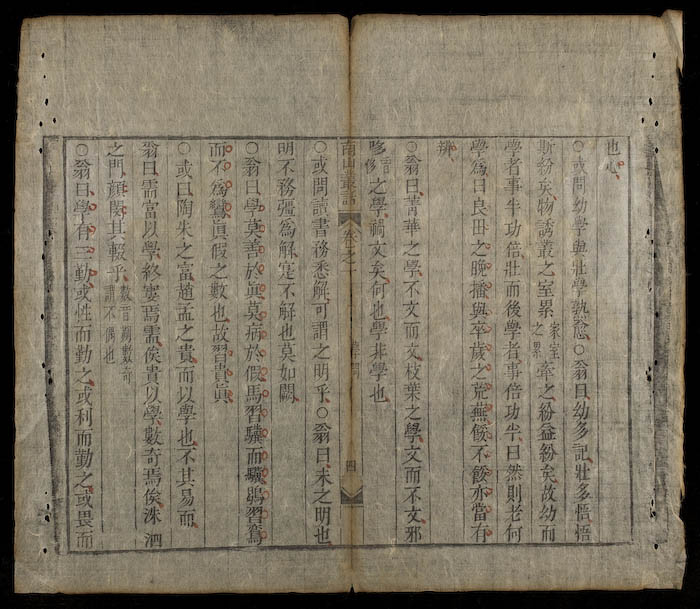 也心
○或問幼學與壯學孰愈○翁曰幼多記壯多悟悟
斯紛矣物誘叢之室累家室之累牽之紛益紛矣故幼而
學者事半功倍壯而後學者事倍功半曰然則老何
學爲曰良田之晚播與卒歲之荒蕪餒不餒亦當有
辨
○翁曰菁華之學不文而文枝葉之學文而不文邪
哆言侈之學禍文矣何也學非學也
南山叢話 卷之一 四
○或問讀書務悉解可謂之明乎○翁曰未之明也
明不務彊爲解寔不解也莫如闕
○翁曰學莫善於眞莫病於假馬習驥而驥鴟習鸞
而不爲鸞眞假之數也故習貴眞
○或曰陶朱之富趙孟之貴而以學也不其易而
翁曰需富以學終寠焉需俟貴以學數奇焉俟洙泗
之門顏閔其輟乎數音朔數奇謂不偶也
○翁曰學有三勤或性而勤之或利而勤之或畏而